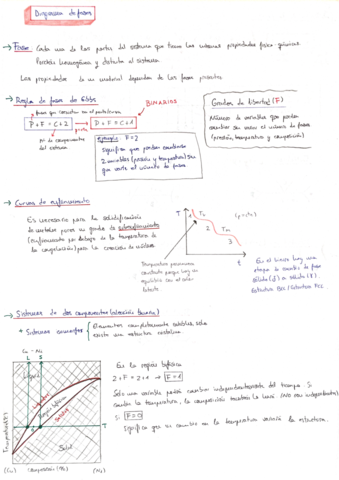 Diagramas de fases
→ Fase: Cada una de las partes del sistema que tienen las mismas propiedades físico-químicas.
Porción homogénea y distinta al sistema.
Las propiedades de un material dependen de las fases presentes.
→ Regla de fases de Gibbs
BINARIOS
P + F = C + 2 → P + F = C + 1
Nº de componentes del sistema
Ejemplo: F = 2
Significa que puedo cambiar
2 variables (presión y temperatura) sin
que varíe el número de fases
Grados de libertad (F)
Número de variables que puedo
cambiar sin variar el número de fases
(presión, temperatura y composición)
→ Curvas de enfriamiento
Es necesario para la solidificación
de metales puros un grado de subenfriamiento
(enfriamiento por debajo de la temperatura de
la congelación) para la creación de núcleos
T
1
2
3
t
(p=cte)
Temperatura permanece
constante porque hay un
equilibrio con el calor
latente
→ Sistemas de dos componentes (aleación binaria)
* Sistemas isomorfos
Elementos completamente solubles, solo
existe una estructura cristalina
Cu - Ni
Líquido
Sólido
Temperatura (ºC)
T
(Cu) Composición (%) (Ni)
En la región bifásica
2 + F = 2 + 1 → F = 1
Solo una variable puede cambiar independientemente del tiempo. Si
cambia la temperatura, la composición también lo hará (no son independientes)
Si F = 0
Significa que un cambio en la temperatura variaría la estructura.